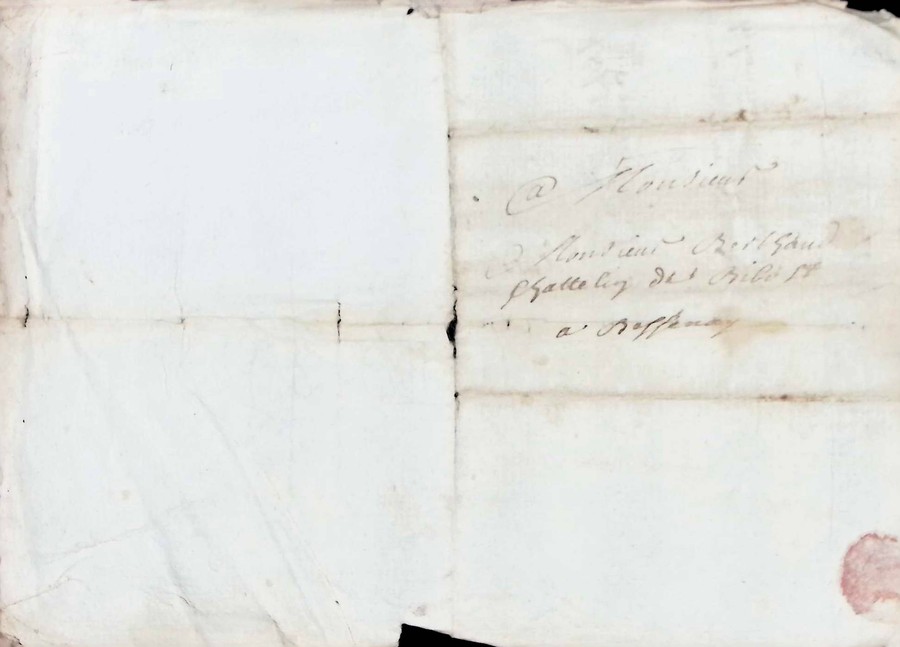 a Monsieur
Monsieur Berthaud
Chattelin de Ribost
a Bessenay